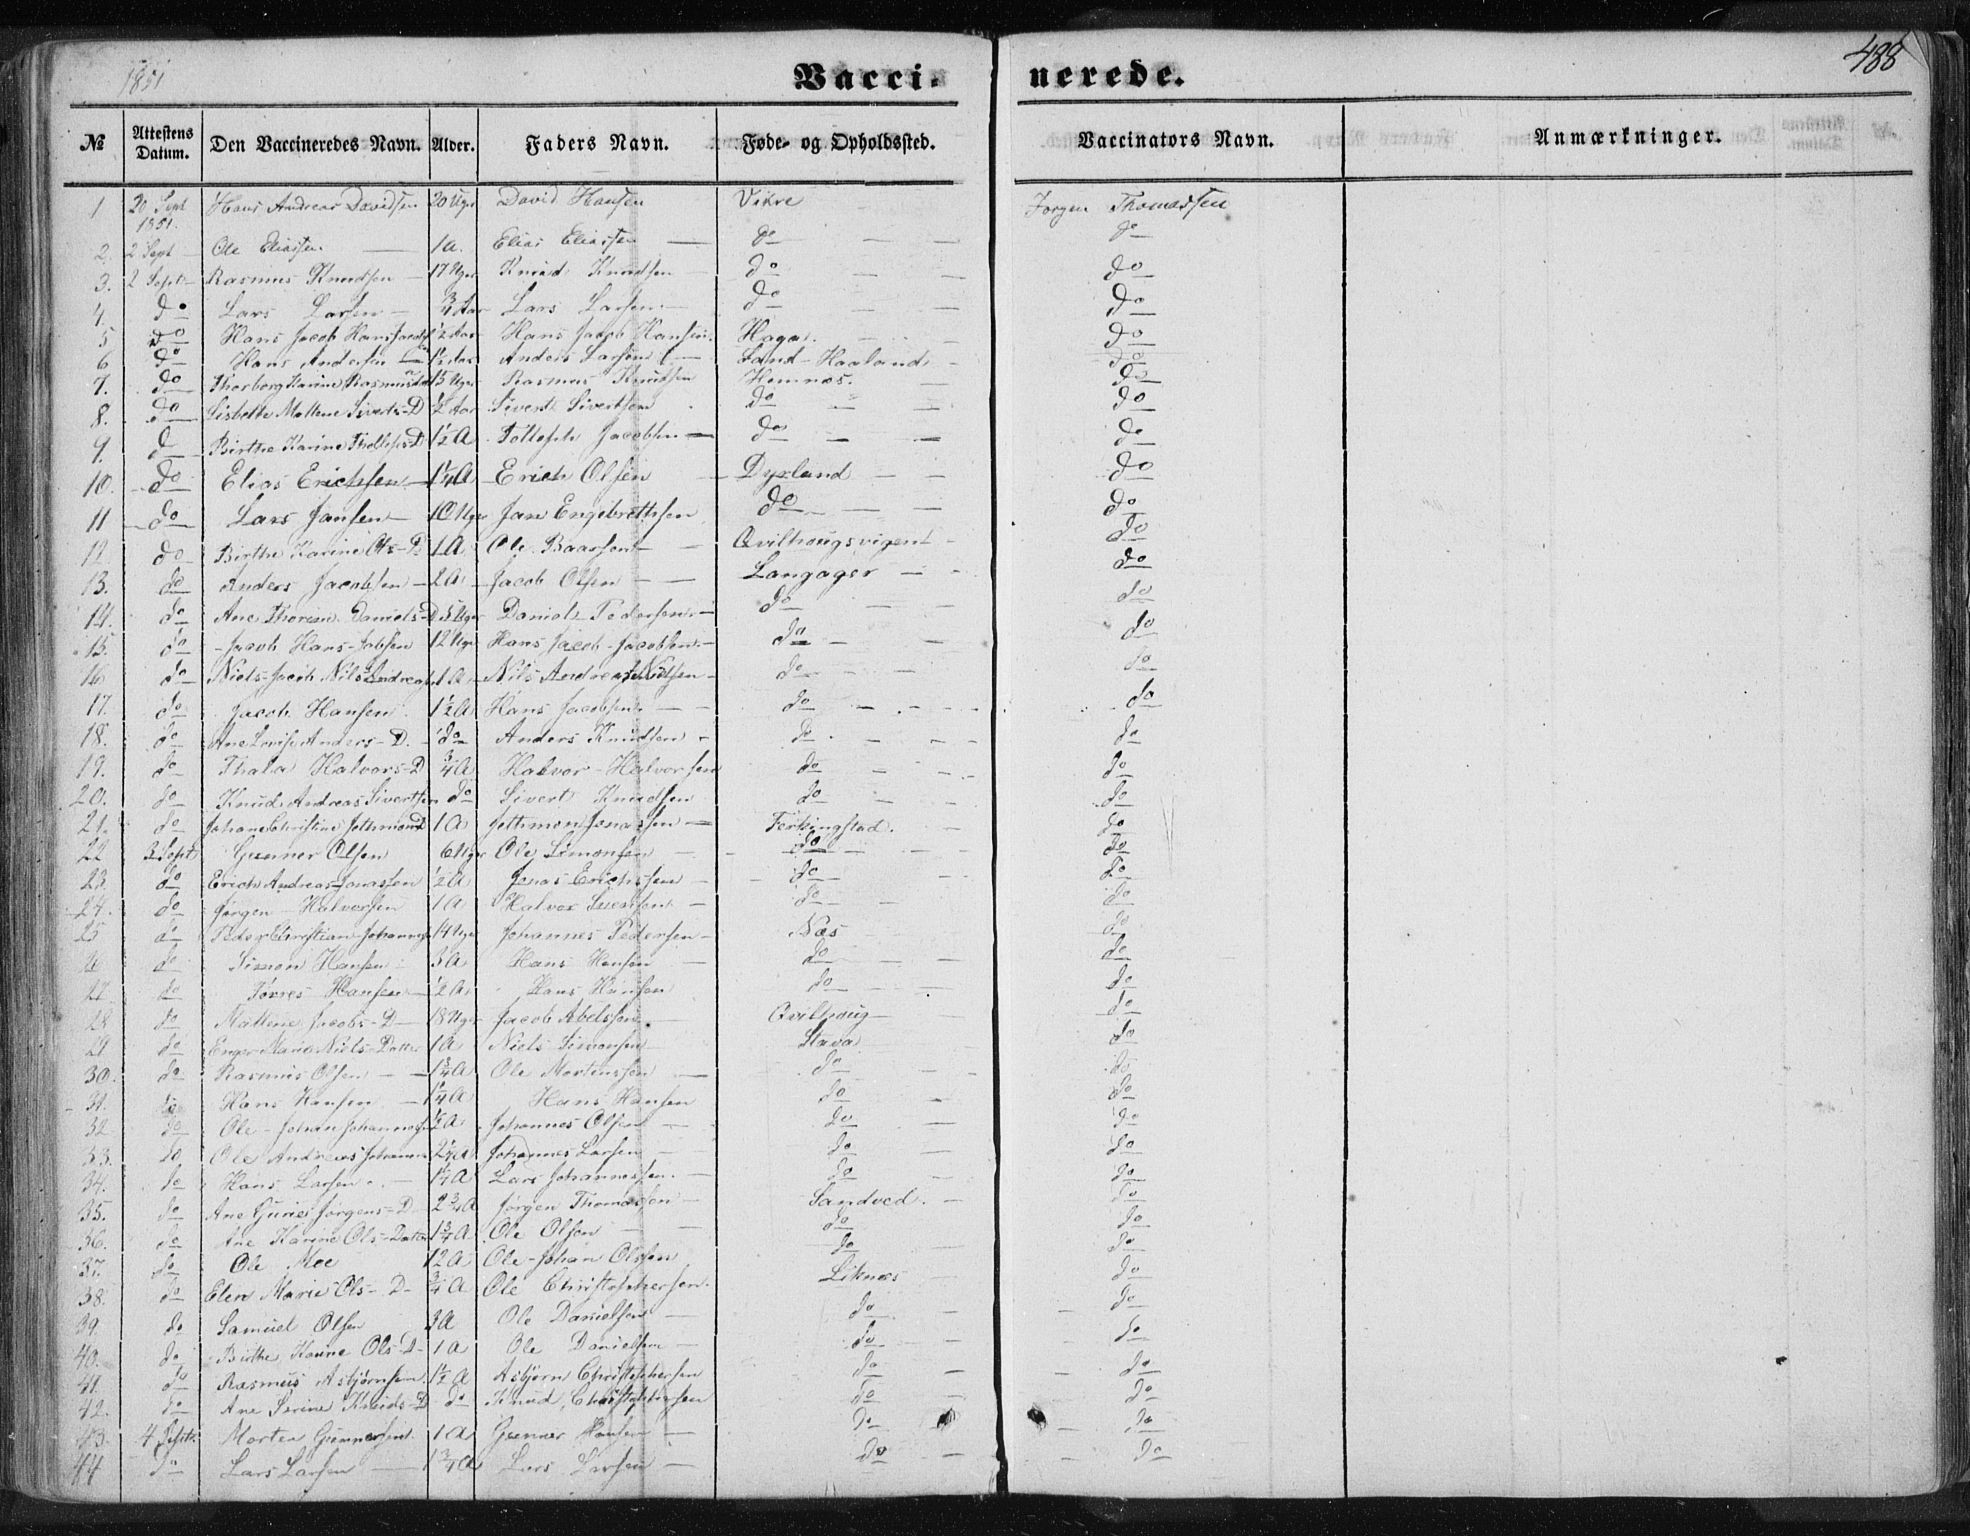 1851
Vaccinerede.
488
№ Attestens Datum. Den Vaccineredes Navn. Alder. Faders Navn. Føde- og Opholdssted. Vaccinators Navn. Anmærkninger.
1 20 Sept 1851. Hans Andreas Davidsen 20 Uger David Hansen Vikre Jørgen Thomassen
2. 2 Sept Ole Eliassen 1 a. Elias Eliassen do do
3. 2 Sept Rasmus Knudsen 17 Uger Knud Knudsen do do
4. do Lars Larsen 3/4 Aar Lars Larsen do do
5 do Hans Jacob Hans 1/2 Aar Hans Jacob Hansen Haga do
6 do Hans Andersen 1/2 Aar Anders Larsen Sand-Haaland do
7. do Thorborg Karine Rasmusd 15 Uger Rasmus Knudsen Hemnæs. do
8. do Lisbette Mallene Siverts-D 1/2 Aar Sivert Sivertsen do do
9. do Birthe Karine 1 1/2 A Tollefsen Jacobsen do do
10. do Elias Erichsen 1 1/4 A Erich Olsen Dyrland do
11 do Lars Jansen 10 Uger Jan Engebrethsen do do
12 do Birthe Karine Ols-D 1 A Ole Baarsen Qvilhougsvigen do
13. do Anders Jacobsen 2 A Jacob Olsen Langager do
14. do Ane Daniels-D Uger Daniel Pedersen do do
15. do Jacob Hans-Jabsen 12 Uger Hans Jacob Jacobsen do do
16 do Niels Jacob Nils Andreas 1 A Nils Andreas Nilsen do do
17. do Jacob Hansen 1 1/2 A Hans Jacobsen do do
18. do Ane Lovise Anders-D. do Anders Knudsen do do
19. do Thala Halvors-D 3/4 A Halvor Halvorsen do do
20. do Knud Andreas Sivertsen do Sivert Knudsen do do
21. do Johane Christine 1 A Jonassen Ferkingstad. do
22 3 Sept Gunner Olsen 6 Uger Ole Simonsen do do
23. do Erich Andreas Jonassen 1/2 A Jonas Erichsen do do
24. do Jørgen Halvorsen 1 A Halvor do do
25 do Peder Christian Johannes 14 Uger Johannes Pedersen Næs do
26 do Simon Hansen 3 A Hans Hansen do do
27 do Torres Hansen 1/2 A Hans Hansen do do
28 do Mallene Jacobs-D 18 Uger Jacob Abelsen Qvilhoug do
29 do Enger Marie Niels-Datter 1 A Niels Simonsen Stava do
30. do Rasmus Olsen 1 3/4 A Ole Mortensen do do
31. do Hans Hansen 1 1/4 A Hans Hansen do do
32 do Ole Johan Johannes A Johannes Olsen do do
33. do Ole Andreas Johannes 2 1/4 A Johannes Larsen do do
34. do Hans Larsen Lars Johannessen. do do
35. do Ane Jørgens-D 2 3/4 A Jørgen Thomassen Sandved. do
36. do Ane Karine Ols-Datter 1 3/4 A Ole Olsen do do
37. do Ole Moe 12 A Ole Johan Olsen do do
38. do Elen Marie Ols-D 3/4 A Ole Christophersen. Liknæs do
39. do Samuel Olsen 3 A Ole Danielsen do do
40. do Birthe Karine Ols-D 1 A Ole Danielsen do do
41. do Rasmus Asbjørnsen 1 1/2 A Asbjørn Christophersen do do
42. do Ane Serine Knuds-D do Knud Christophersen do do
43. 4 Sept. Morten Gunnersen 1 A Gunner Hansen do do
44 do Lars Larsen 1 3/4 A Lars Larsen do do